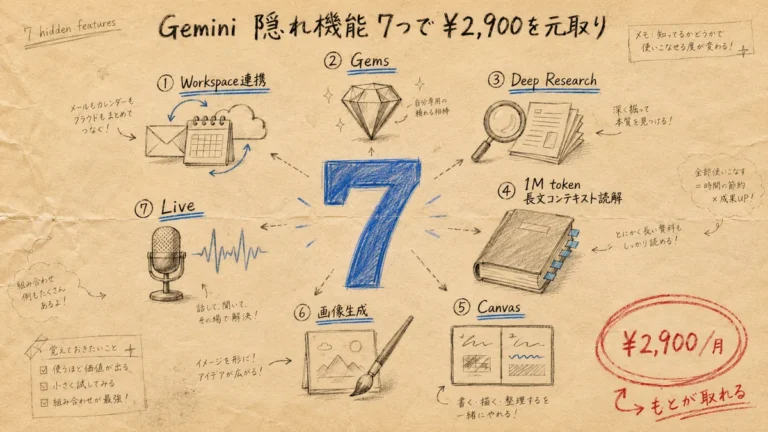 7 hidden features
Gemini 隠れ機能 7つで ¥2,900を元取り
メモ：知ってるかどうかで
使いこなせる度が変わる！
① Workspace連携
メールもカレンダーも
クラウドもまとめて
つなぐ！
② Gems
自分専用の
頼れる相棒
③ Deep Research
深く掘って
本質を見つける！
7
④ 1M token
長文コンテキスト読解
とにかく長い資料も
しっかり読める！
全部使いこなす
＝時間の節約
×成果UP！
⑦ Live
話して、聞いて、
その場で解決！
組み合わせ
例もたくさん
あるよ！
⑥ 画像生成
イメージを形に！
アイデアが広がる！
⑤ Canvas
1
2
書く・描く・整理するを
一緒にやれる！
覚えておきたいこと
☑ 使うほど価値が出る
☑ 小さく試してみる
☑ 組み合わせが最強！
¥2,900/月
もとが取れる